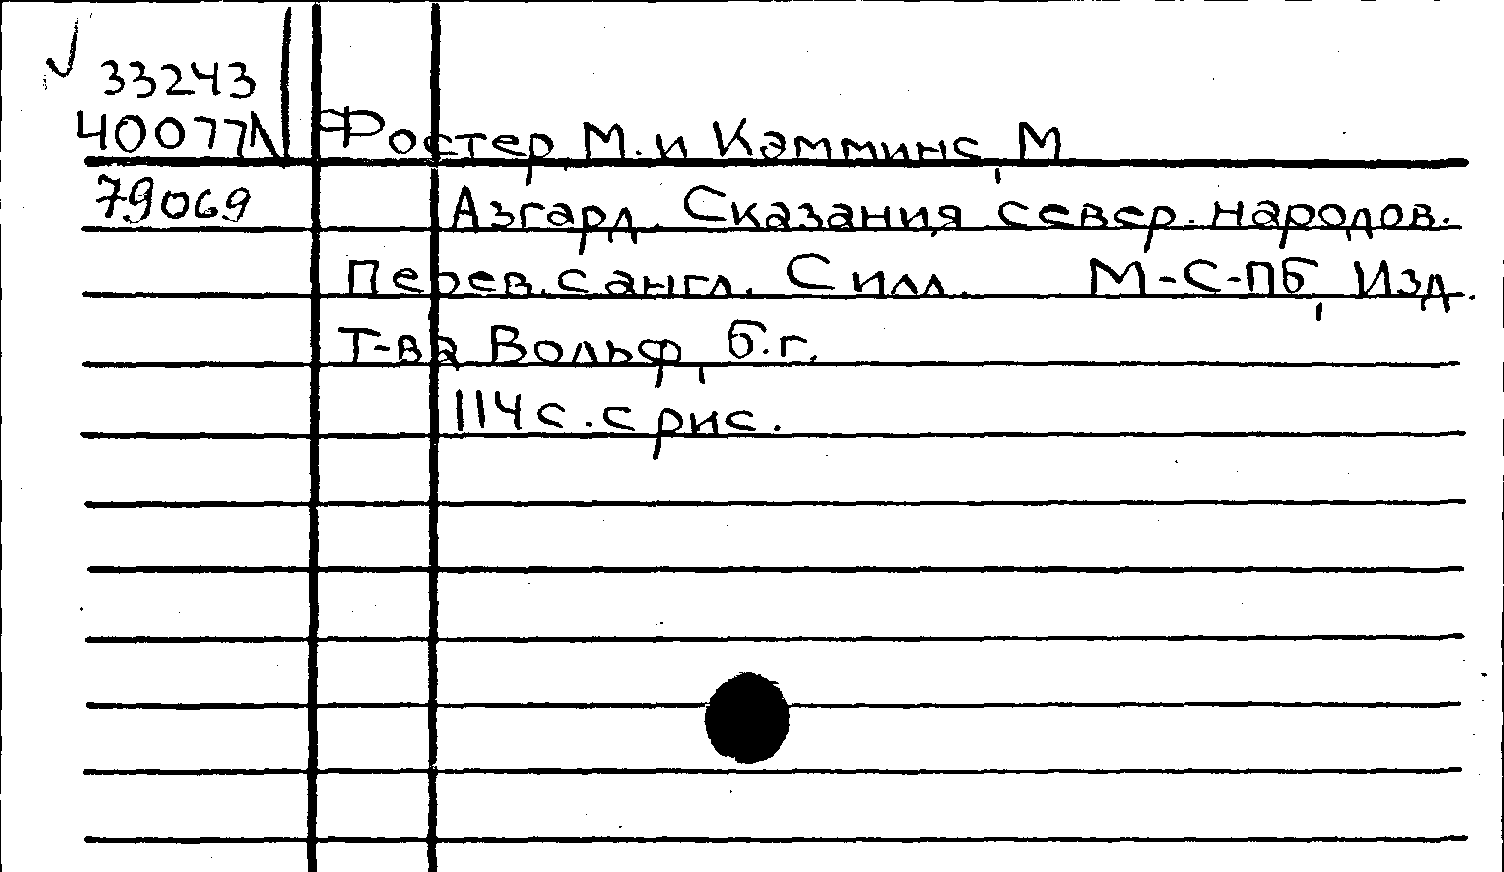 33243
40077N
79069
Фостер М. и Камминс, М
Азгард. Сказания север. народов.
Перев. с англ. С илл. М-С-ПБ, Изд.
Т-ва Вольф, б.г.
114 с. с рис.